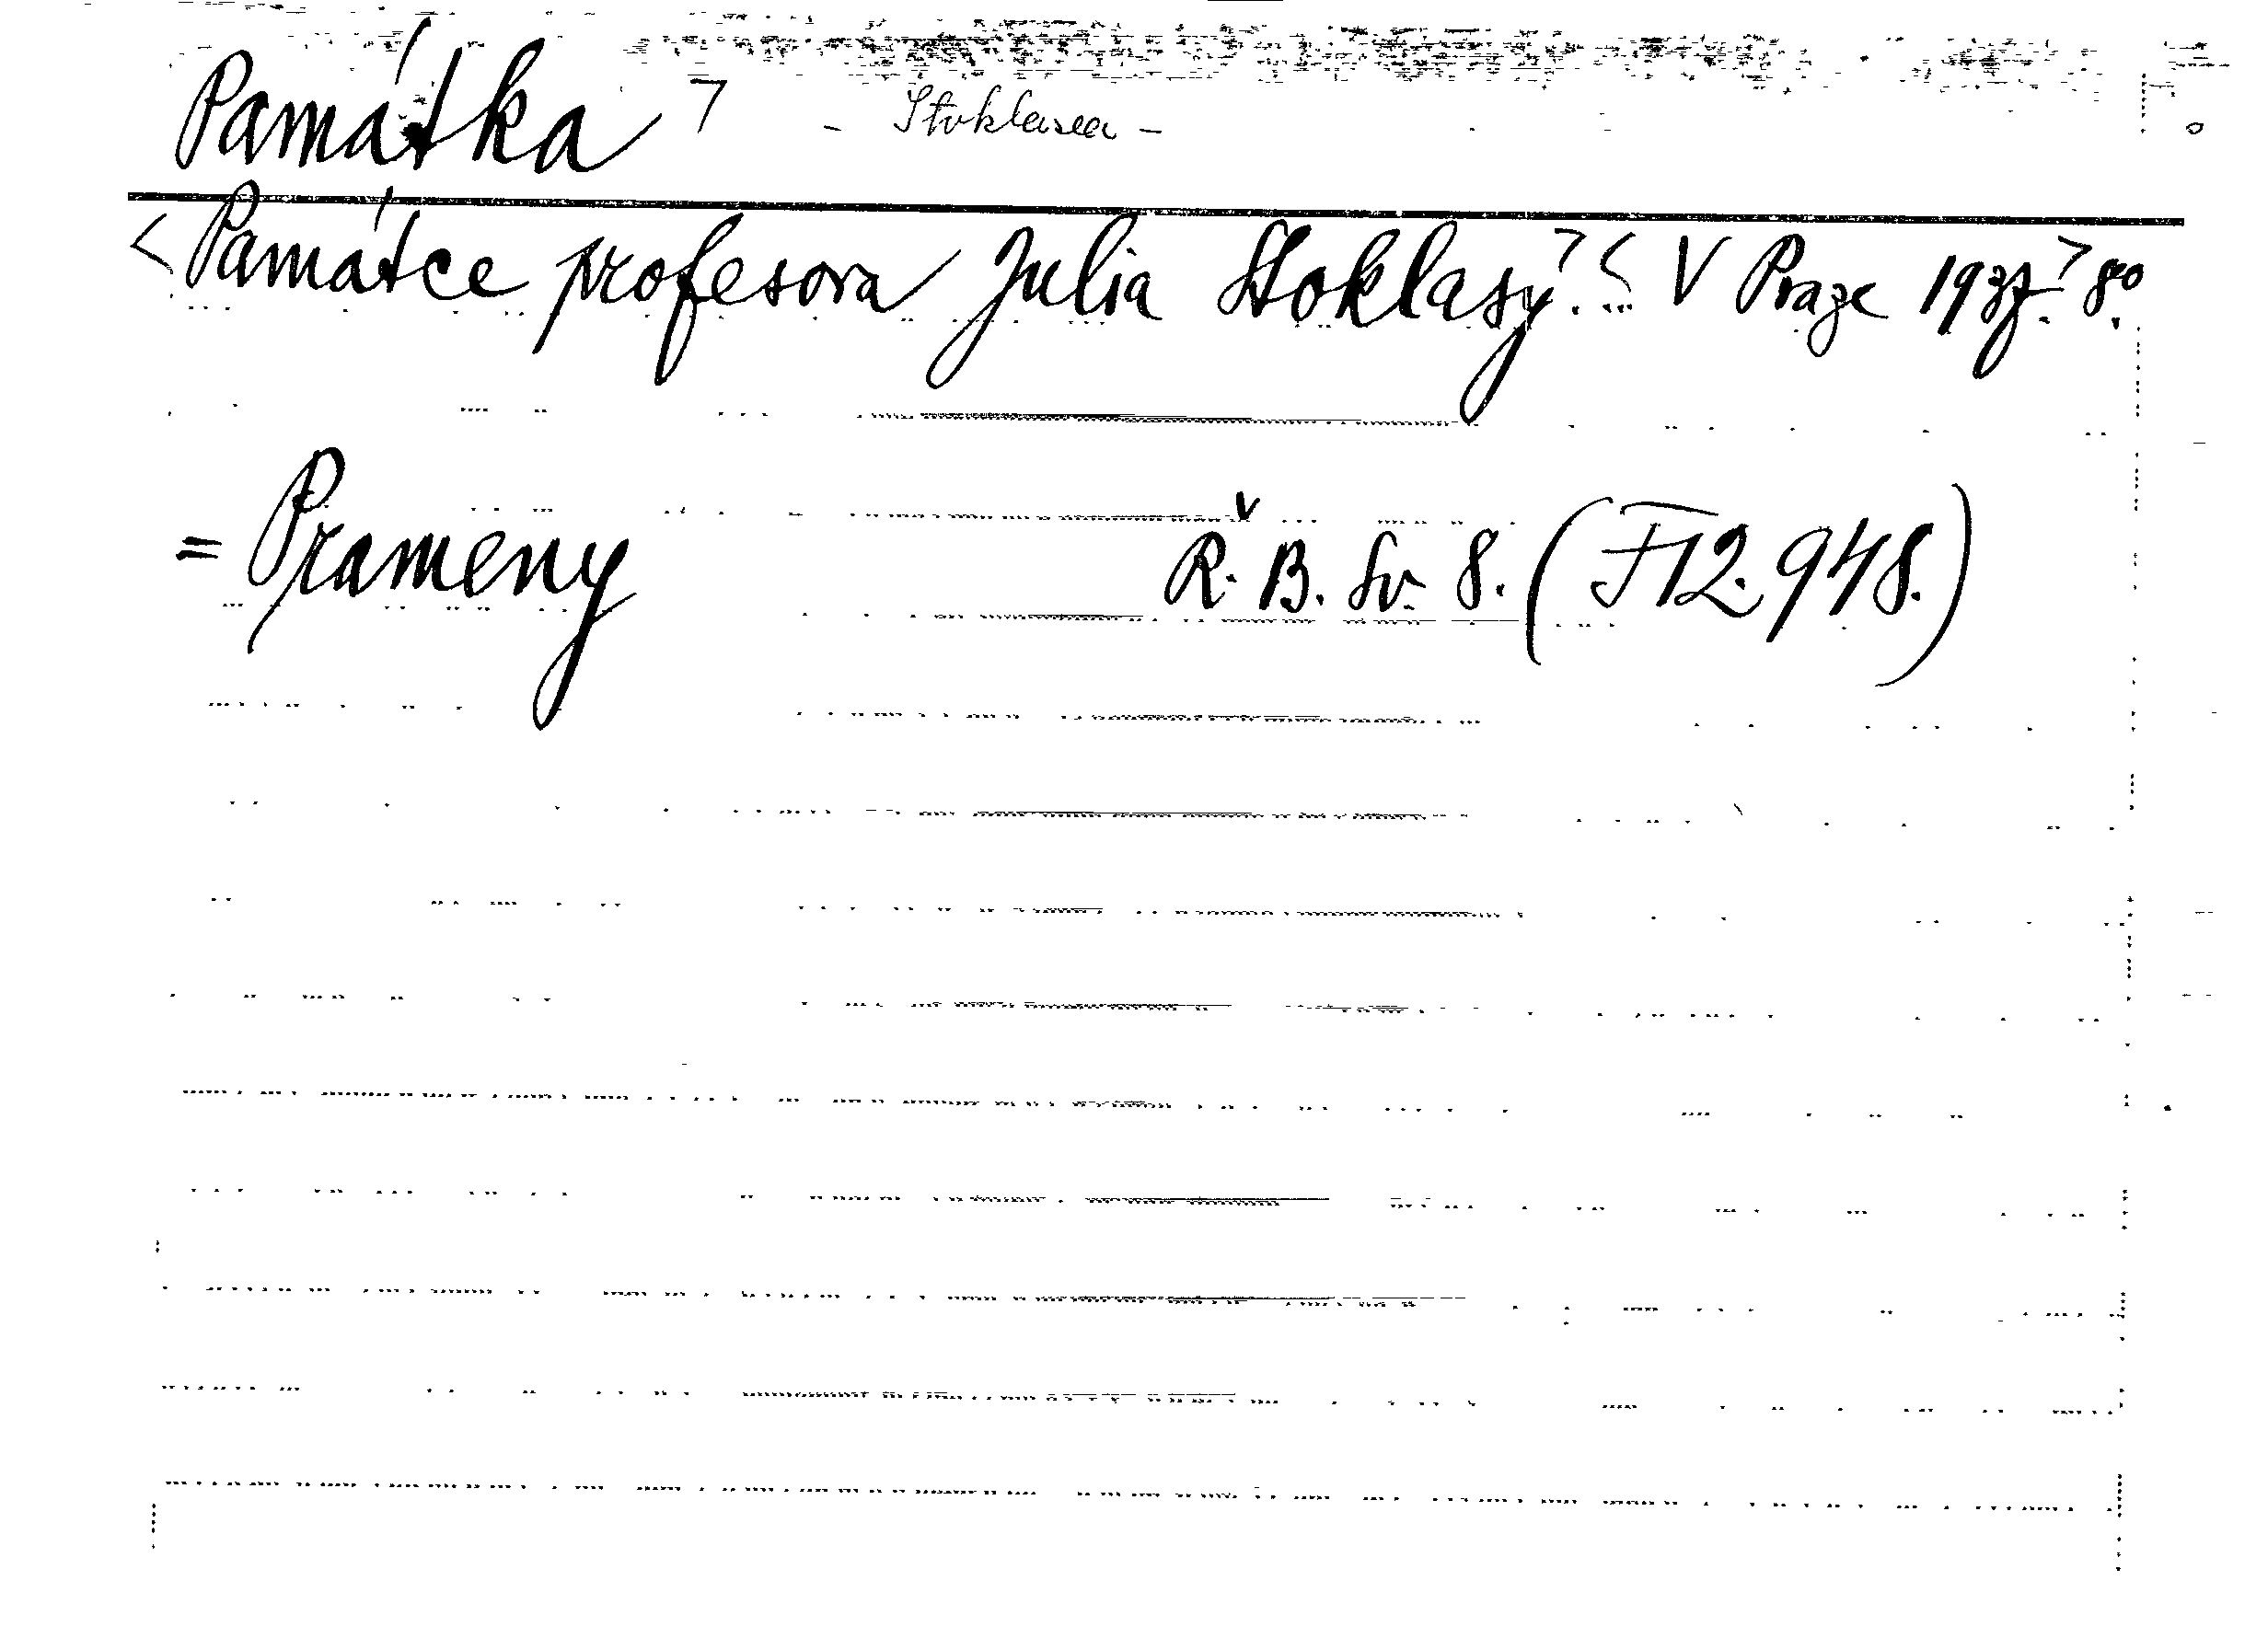 Památka > - Stoklasa -
<Památce profesora Julia Stoklasy.> <V Praze 1937.> 8°.
= Prameny Ř. B. Sv. 8. (F12.948.)